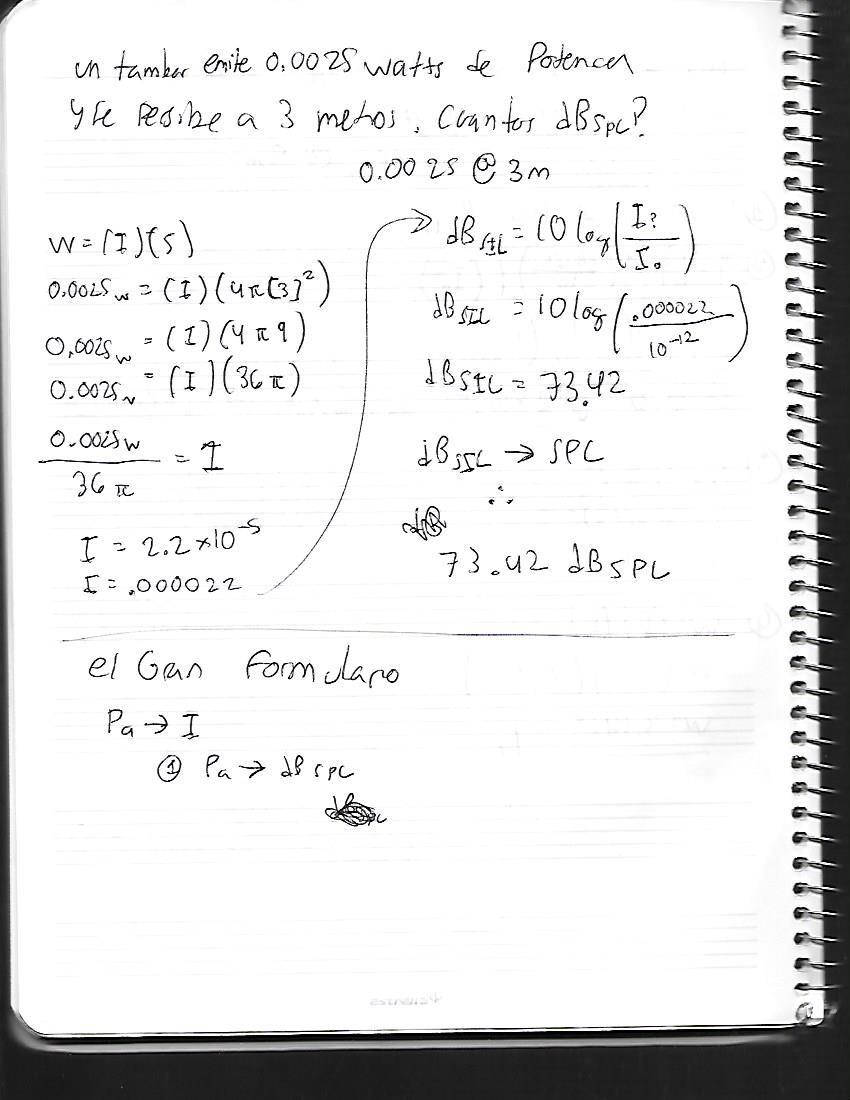 un tambor emite 0.0025 watts de Potencia
y se recibe a 3 metros. Cuantos dBSPL?
0.0025 @ 3m
W = (I)(S)
0.0025w = (I)(4π[3]²)
0.0025w = (I)(4π9)
0.0025w = (I)(36π)
0.0025w
36π
= I
I = 2.2x10⁻⁵
I = .000022
dBSIL = 10 log (I?/I.)
dBSIL = 10 log (.000022/10⁻¹²)
dBSIL = 73.42
dBSIL → SPL
∴
73.42 dBSPL
el Gran Formulario
Pa → I
① Pa → dBSPL